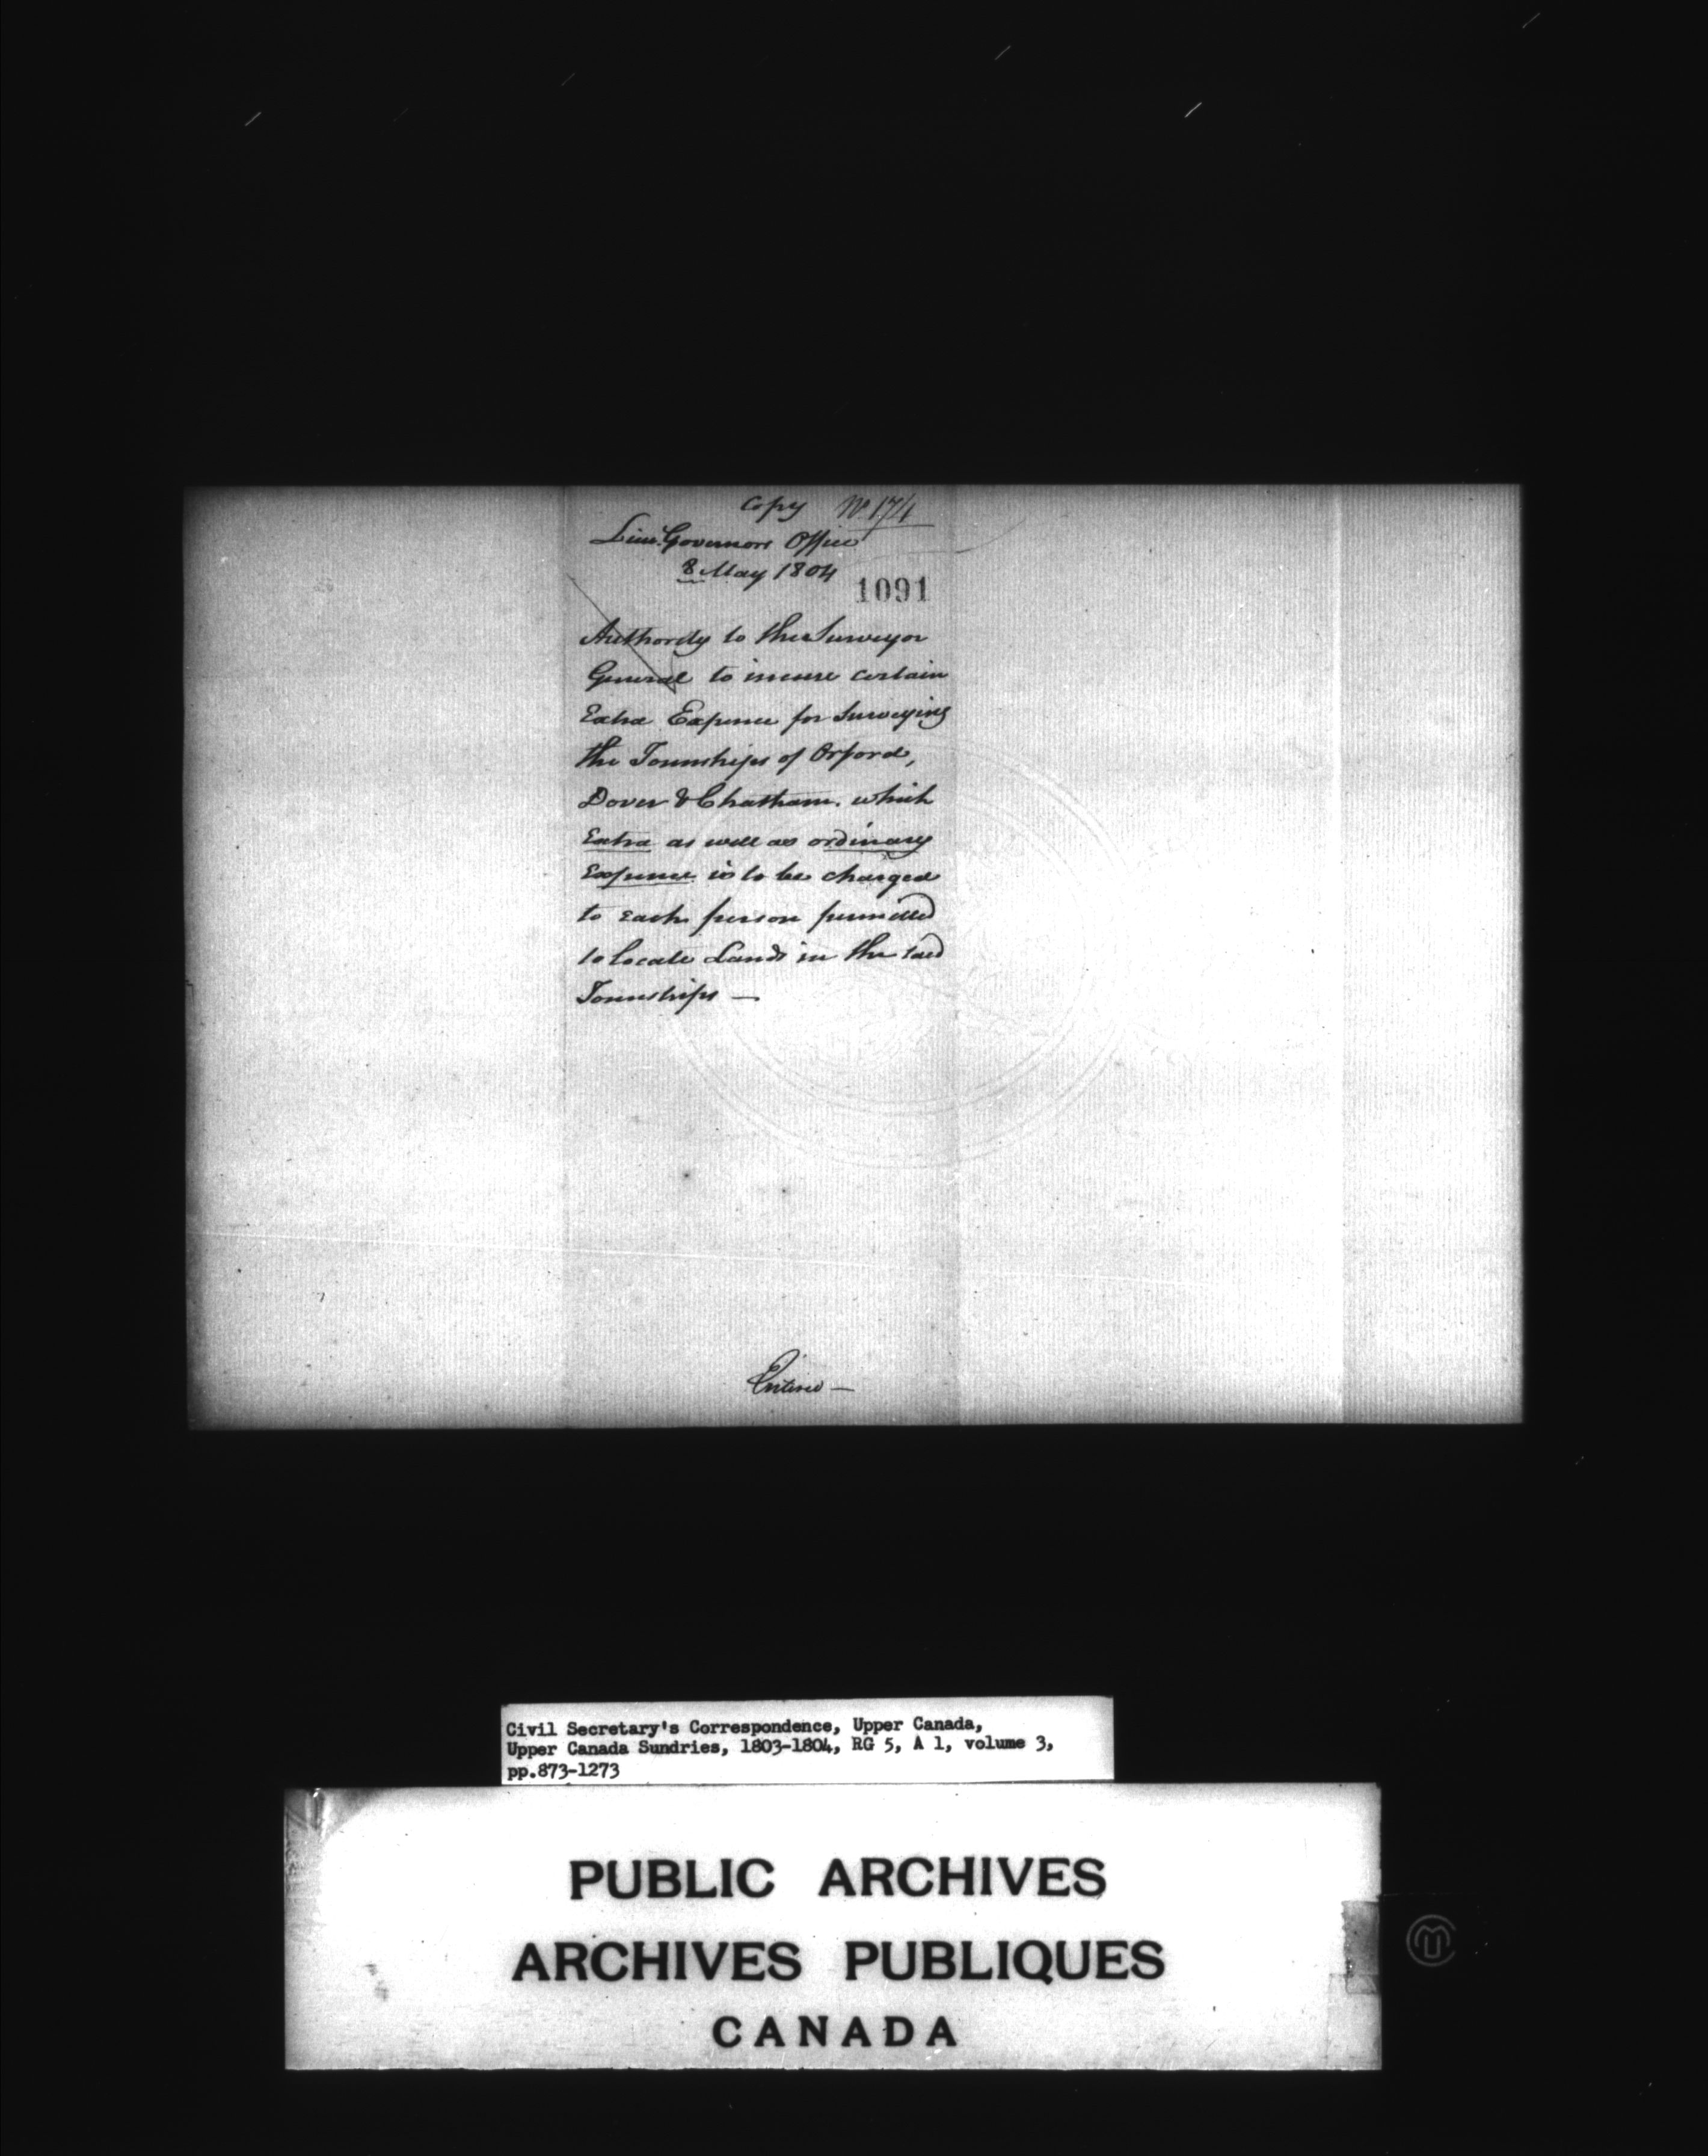 Copy No. 174
Lieut. Governors Office
8 May 1804
1091
Authority to the Surveyor
General to incure certain
Extra Expence for Surveying
the Townships of Orford,
Dover & Chatham. which
Extra as well as ordinary
Expence is to be charged
to each person permitted
to locate Lands in the said
Townships —
Entered —
Civil Secretary's Correspondence, Upper Canada,
Upper Canada Sundries, 1803-1804, RG 5, A 1, volume 3,
pp.873-1273
PUBLIC ARCHIVES
ARCHIVES PUBLIQUES
CANADA